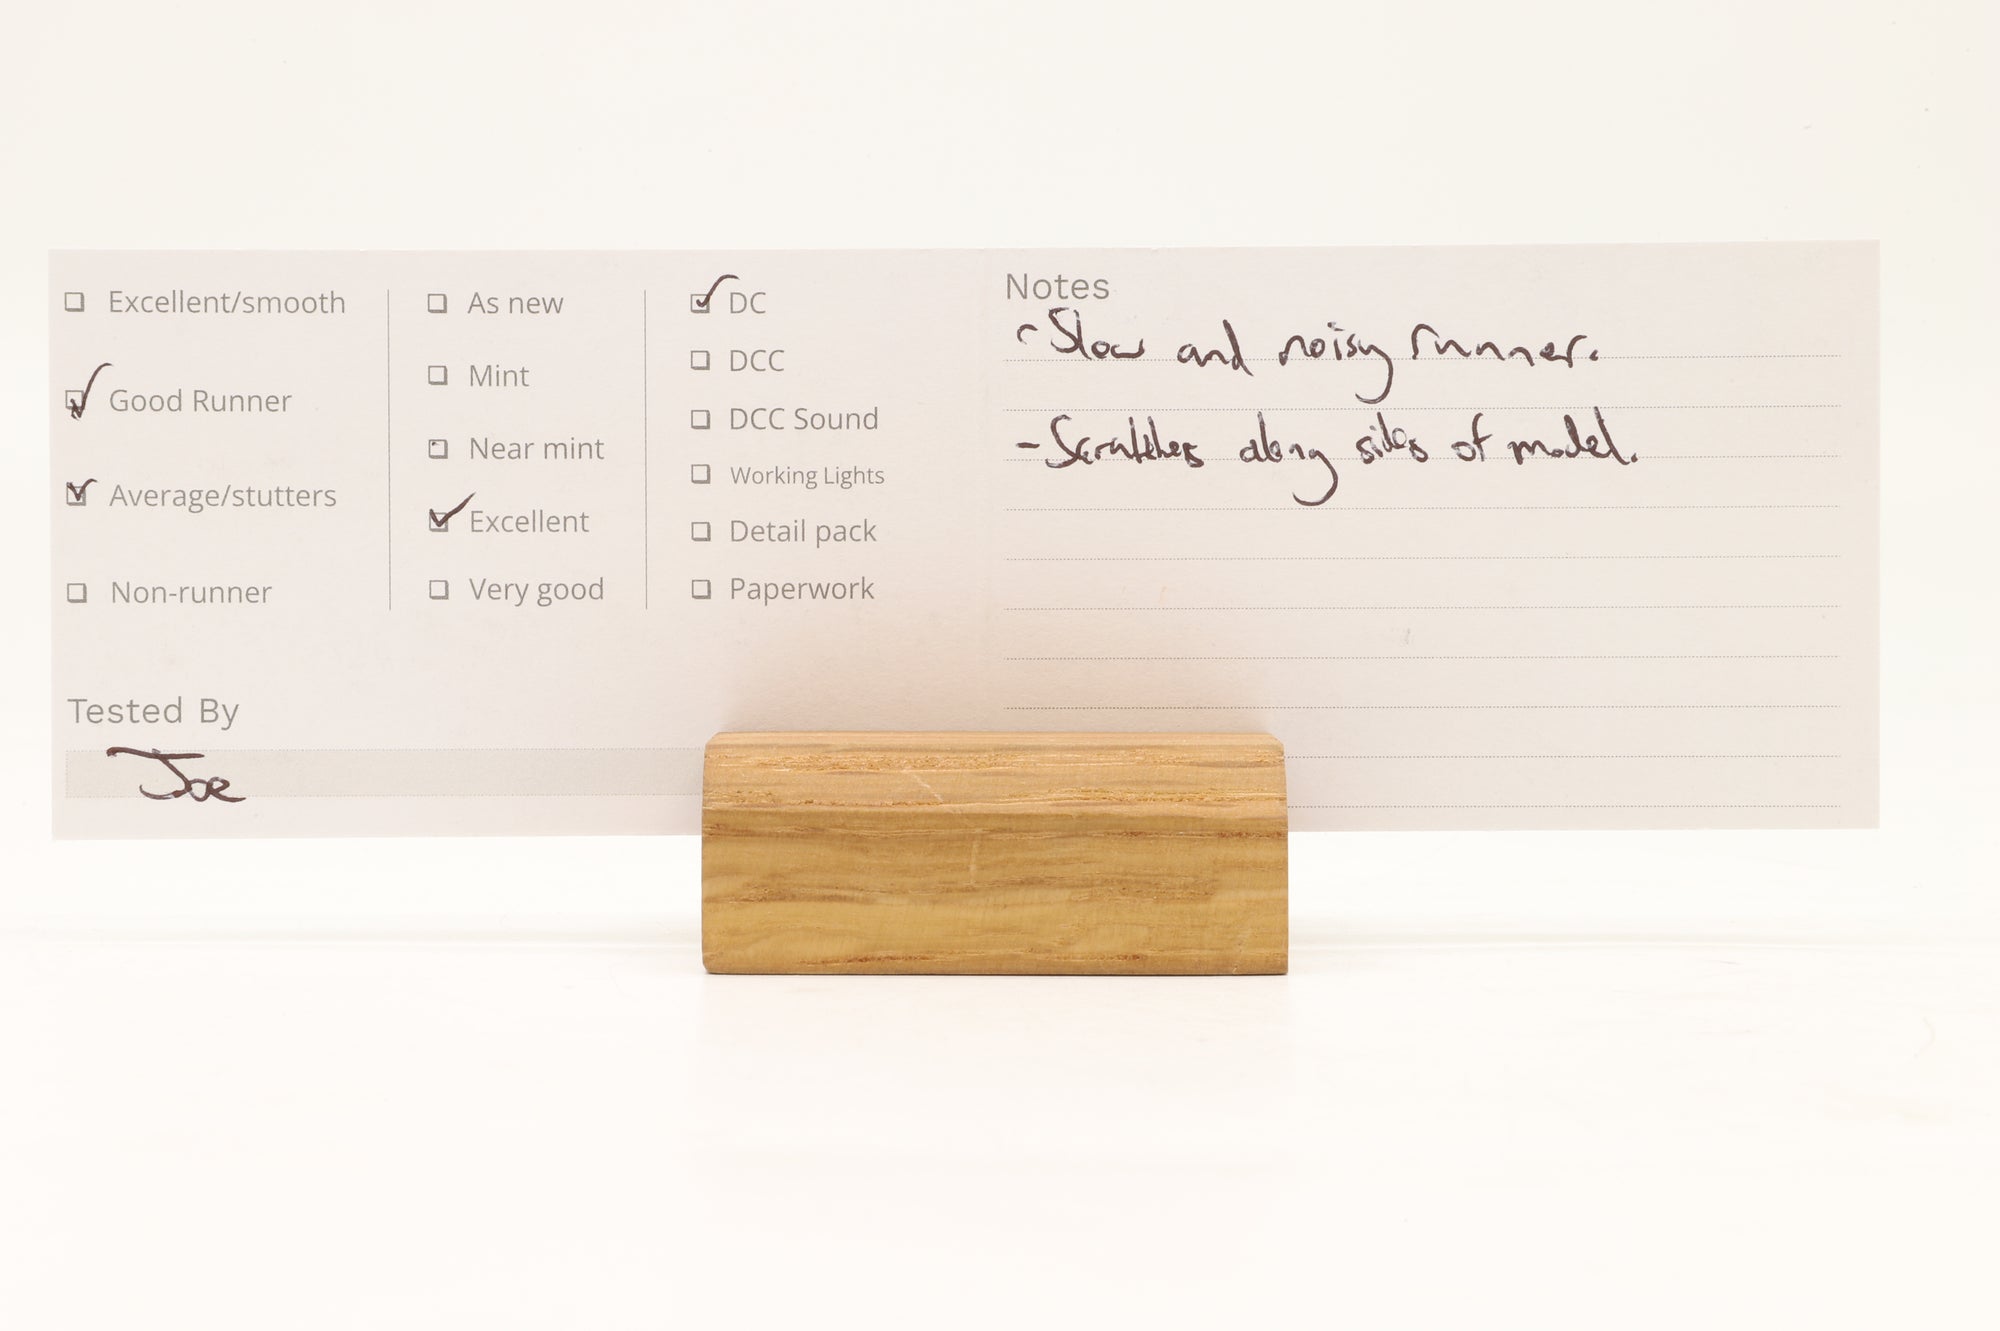 Excellent/smooth
Good Runner
Average/stutters
Non-runner
As new
Mint
Near mint
Excellent
Very good
DC
DCC
DCC Sound
Working Lights
Detail pack
Paperwork
Tested By
Joe
Notes
- Slow and noisy runner.
- Scratches along sides of model.